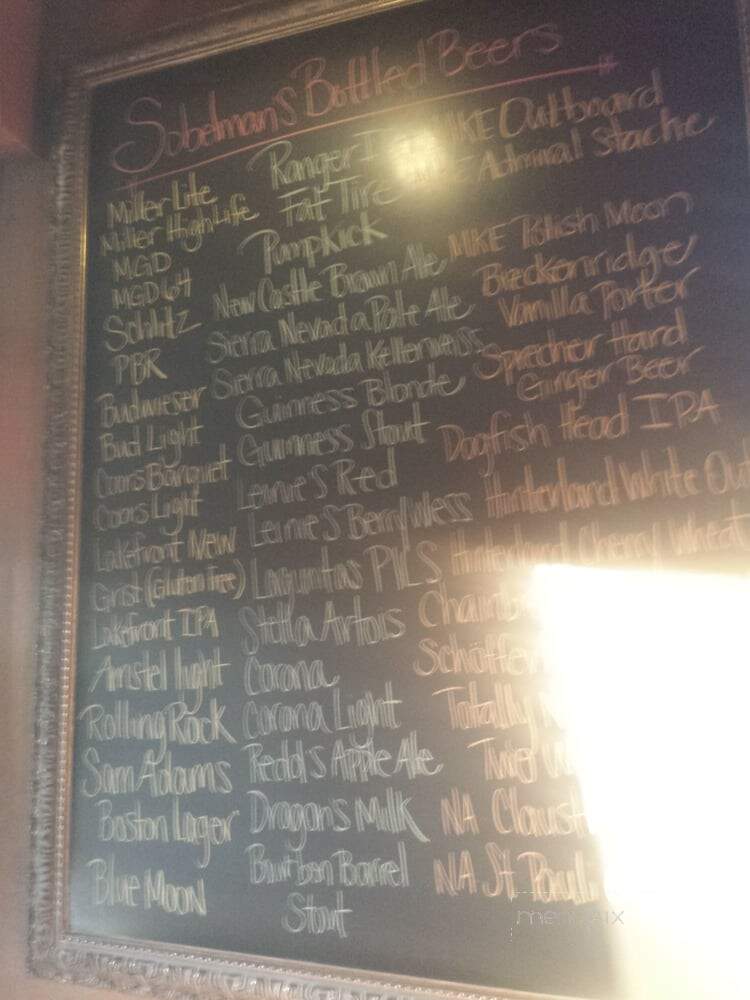 Sobelman's Bottled Beers
Miller Lite
Miller High Life
MGD
MGD 64
Schlitz
PBR
Budwieser
Bud Light
Coors Banquet
Coors Light
Lakefront New
Grist (Gluten Free)
Lakefront IPA
Amstel light
Rolling Rock
Sam Adams
Boston Lager
Blue Moon
Ranger
Fat Tire
Pumpkick
New Castle Brown Ale
Sierra Nevada Pale Ale
Sierra Nevada Kellerweiss
Guinness Blonde
Guinness Stout
Leinie's Red
Leinie's Berry Weiss
Lagunitas PILS
Stella Artois
Corona
Corona Light
Redd's Apple Ale
Dragon's Milk
Bourbon Barrel
Stout
MKE Outboard
Admiral Stache
MKE Polish Moon
Breckenridge
Vanilla Porter
Sprecher Hard
Ginger Beer
Dogfish Head IPA
Hinterland White Out
Hinterland Cherry Wheat
Totally
NA
NA St. Pauli